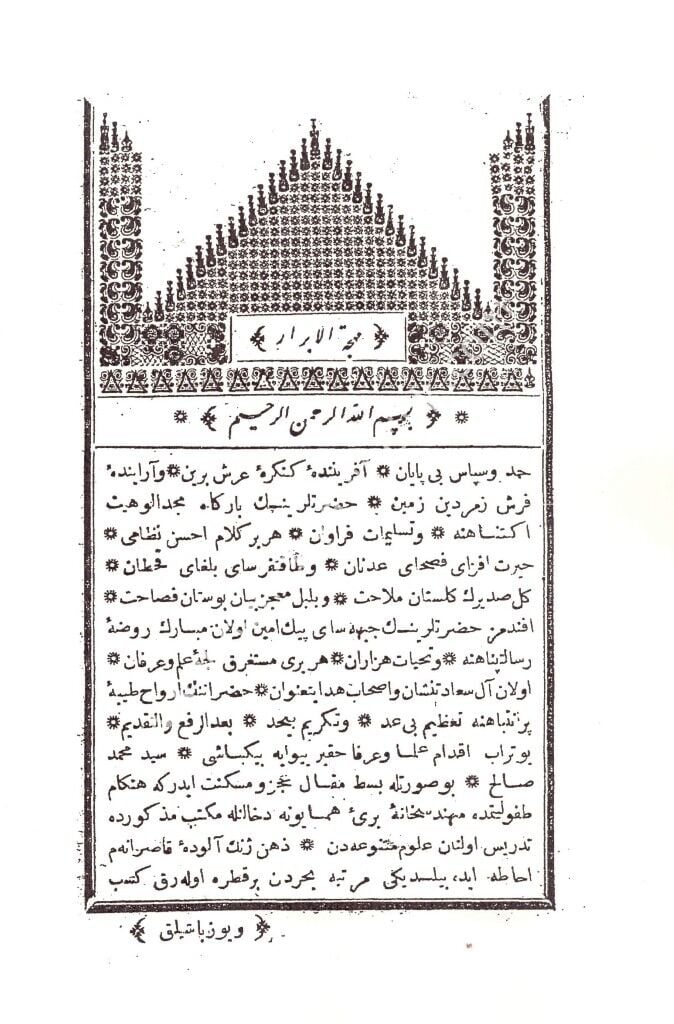 ﴾ مهجة الابرار ﴿
❋ ﴾ بسم الله الرحمن الرحيم ﴿ ❋
حمد وسپاس بى پايان ❋ آفرينندهٔ كنكرهٔ عرش برين ❋ وآرايندهٔ
فرش زمردين زمين ❋ حضرتلرينك باركاه مجد الوهيت
اكتناهنه ❋ وتسليمات فراوان ❋ هر بر كلام احسن نظامى ❋
حيرت افزاى فصحاى عدنان ❋ وطاقتفرساى بلغاى قحطان ❋
كل صد برك كلستان ملاحت ❋ وبلبل معجز بيان بوستان فصاحت ❋
افندمز حضرتلرينك جبهه ساى پيك امين اولان مبارك روضهٔ
رسالتپناهنه ❋ وتحيات هزاران ❋ هر برى مستغرق لجهٔ علم وعرفان ❋
اولان آل سعادتنشان واصحاب هدايتعنوان ❋ حضراتنك ارواح طيبهٔ
پر انتباهنه تعظيم بى عد ❋ وتكريم بيحد ❋ بعد الرفع والتقديم ❋
بوتراب اقدام علما وعرفا حقير بيوايه بيكباشى ❋ سيد محمد
صالح ❋ بو صورتله بسط مقال عجز ومسكنت ايدر كه هنكام
طفوليتمده مهندسخانهٔ برىٔ همايونه دخالتله مكتب مذكورده
تدريس اولنان علوم متنوعه دن ❋ ذهن ژنك آلودهٔ قاصرانه م
احاطه ايده بيلديكى مرتبه بحردن بر قطره اوله رق كسب
﴾ ويوزباشيلق ﴿